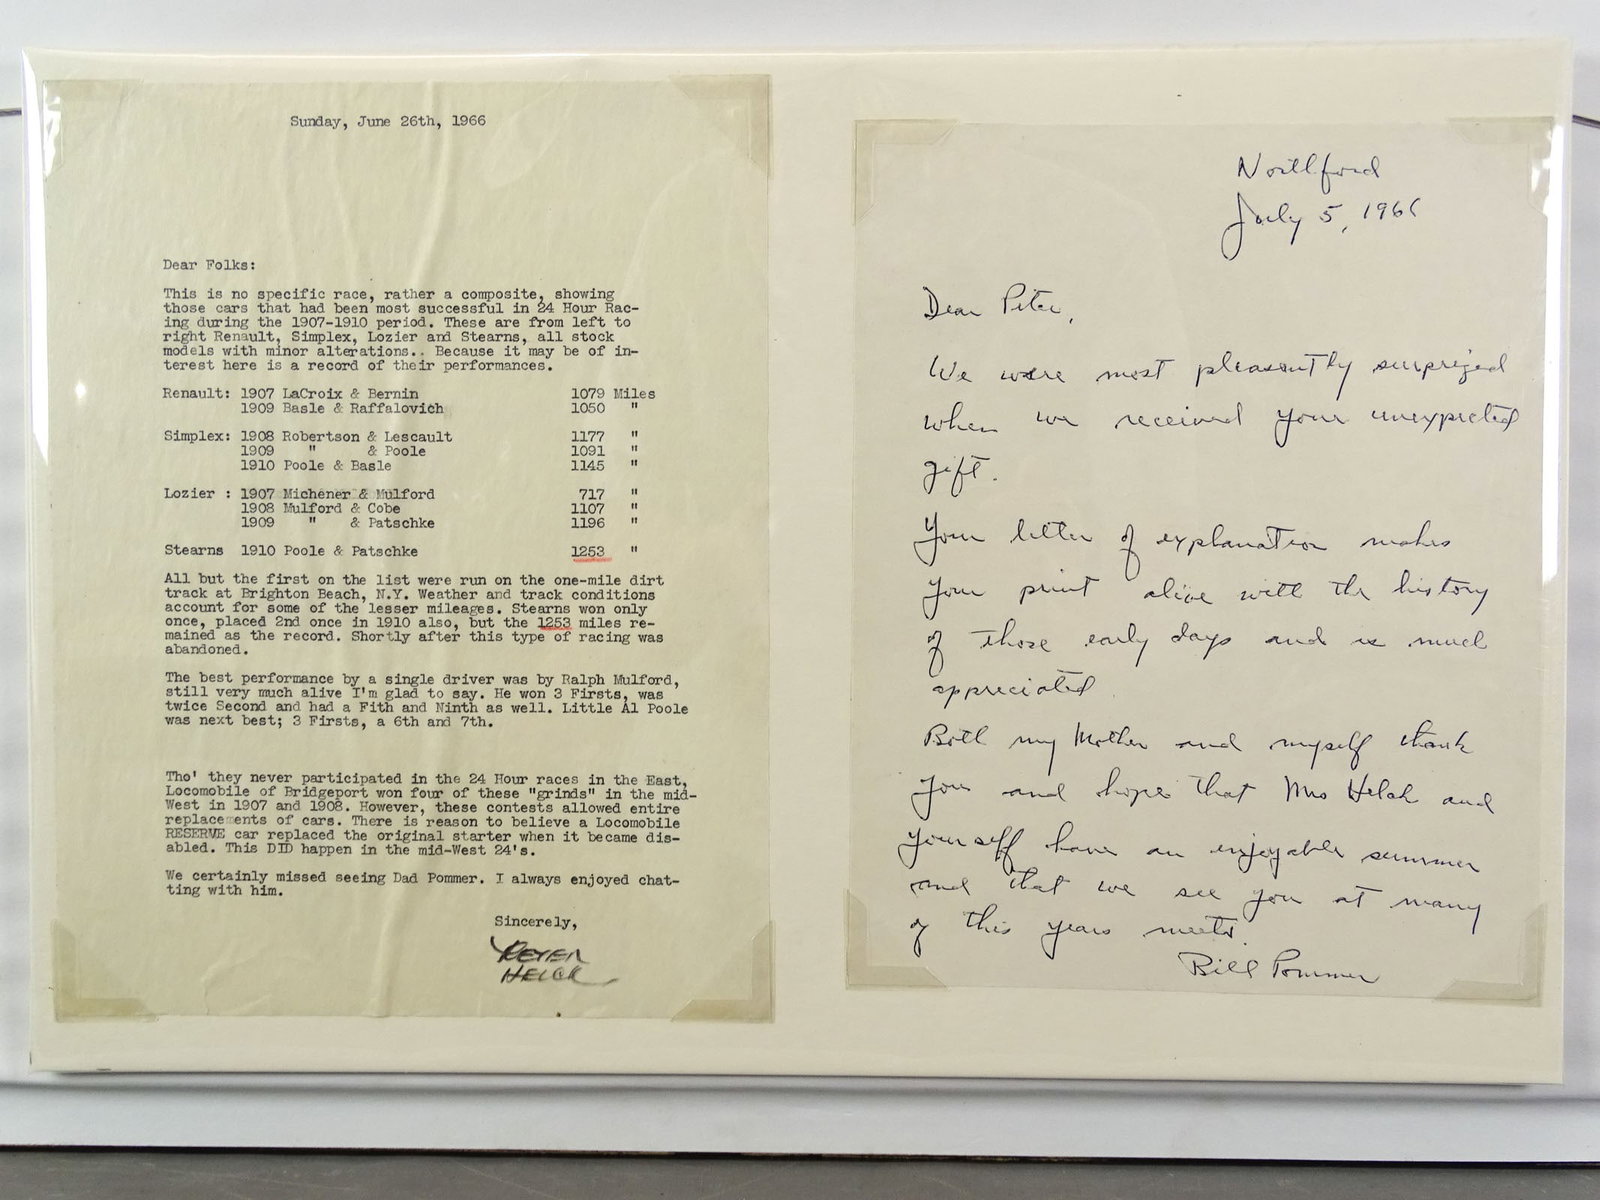 Sunday, June 26th, 1966
Dear Folks:
This is no specific race, rather a composite, showing
those cars that had been most successful in 24 Hour Rac-
ing during the 1907-1910 period. These are from left to
right Renault, Simplex, Lozier and Stearns, all stock
models with minor alterations.. Because it may be of in-
terest here is a record of their performances.
Renault: 1907 LaCroix & Bernin 1079 Miles
1909 Basle & Raffalovich 1050 "
Simplex: 1908 Robertson & Lescault 1177 "
1909 " & Poole 1091 "
1910 Poole & Basle 1145 "
Lozier : 1907 Michener & Mulford 717 "
1908 Mulford & Cobe 1107 "
1909 " & Patschke 1196 "
Stearns 1910 Poole & Patschke 1253 "
All but the first on the list were run on the one-mile dirt
track at Brighton Beach, N.Y. Weather and track conditions
account for some of the lesser mileages. Stearns won only
once, placed 2nd once in 1910 also, but the 1253 miles re-
mained as the record. Shortly after this type of racing was
abandoned.
The best performance by a single driver was by Ralph Mulford,
still very much alive I'm glad to say. He won 3 Firsts, was
twice Second and had a Fith and Ninth as well. Little Al Poole
was next best; 3 Firsts, a 6th and 7th.
Tho' they never participated in the 24 Hour races in the East,
Locomobile of Bridgeport won four of these "grinds" in the mid-
West in 1907 and 1908. However, these contests allowed entire
replacements of cars. There is reason to believe a Locomobile
RESERVE car replaced the original starter when it became dis-
abled. This DID happen in the mid-West 24's.
We certainly missed seeing Dad Pommer. I always enjoyed chat-
ting with him.
Sincerely,
PETER
HELCK
Northford
July 5, 1966
Dear Peter,
We were most pleasantly surprized
when we received your unexpected
gift.
Your letter of explanation makes
your print alive with the history
of those early days and is much
appreciated.
Both my Mother and myself thank
you and hope that Mrs Helck and
yourself have an enjoyable summer
and that we see you at many
of this years meets.
Bill Pommer